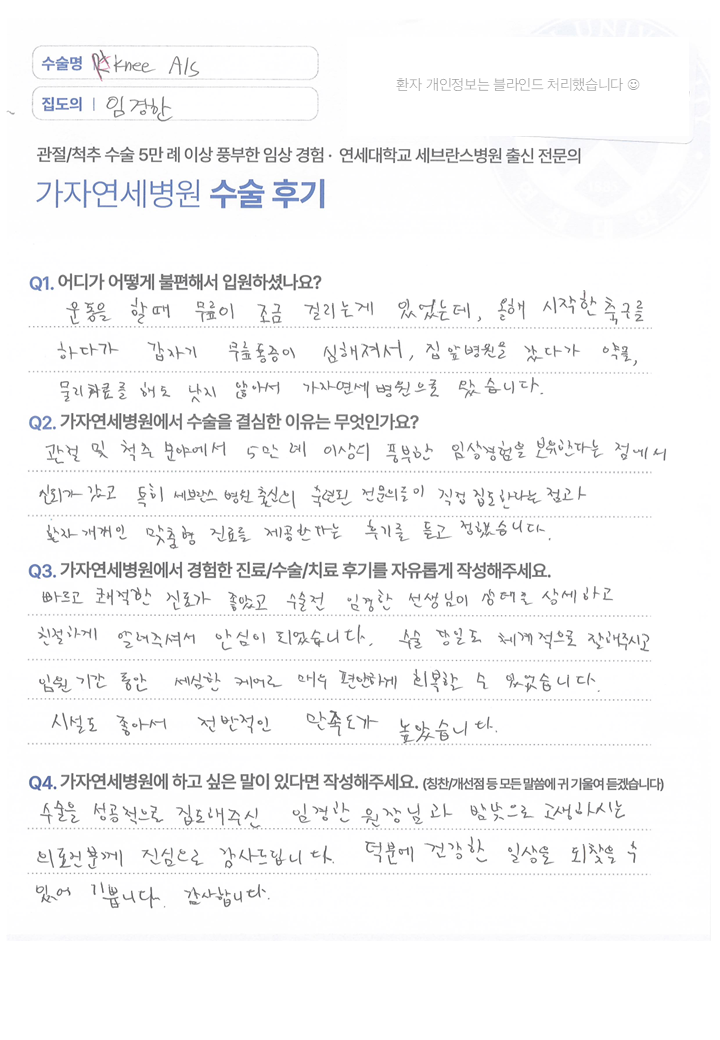 수술명 Rt knee A/s
환자 개인정보는 블라인드 처리했습니다 ☺
집도의 | 임경한
관절/척추 수술 5만 례 이상 풍부한 임상 경험 · 연세대학교 세브란스병원 출신 전문의
가자연세병원 수술 후기
Q1. 어디가 어떻게 불편해서 입원하셨나요?
운동을 할때 무릎이 조금 걸리는게 있었는데, 올해 시작한 축구를
하다가 갑자기 무릎통증이 심해져서, 집앞병원을 갔다가 약물,
물리치료를 해도 낫지 않아서 가자연세병원으로 왔습니다.
Q2. 가자연세병원에서 수술을 결심한 이유는 무엇인가요?
관절 및 척추 분야에서 5만 례 이상의 풍부한 임상경험을 보유한다는 점에서
신뢰가 갔고 특히 세브란스 병원 출신의 숙련된 전문의들이 직접 집도한다는 점과
환자 개개인 맞춤형 진료를 제공한다는 후기를 듣고 정했습니다.
Q3. 가자연세병원에서 경험한 진료/수술/치료 후기를 자유롭게 작성해주세요.
빠르고 쾌적한 진료가 좋았고 수술전 임경한 선생님이 상태를 상세하고
친절하게 알려주셔서 안심이 되었습니다. 수술 당일도 체계적으로 잘해주시고
입원 기간 동안 세심한 케어로 매우 편안하게 회복할 수 있었습니다.
시설도 좋아서 전반적인 만족도가 높았습니다.
Q4. 가자연세병원에 하고 싶은 말이 있다면 작성해주세요. (칭찬/개선점 등 모든 말씀에 귀 기울여 듣겠습니다)
수술을 성공적으로 집도해주신 임경한 원장님과 밤낮으로 고생하시는
의료진분께 진심으로 감사드립니다. 덕분에 건강한 일상을 되찾을 수
있어 기쁩니다. 감사합니다.